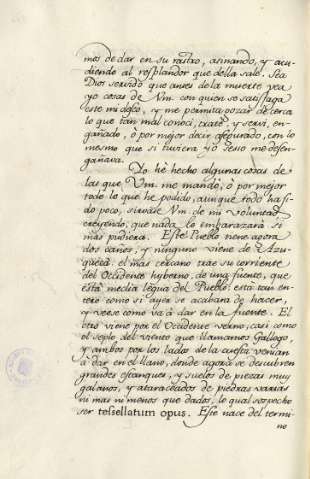 mos de dar en su rastro, atinando, y acu-
diendo al resplandor que della sale. Sea
Dios servido que antes de la muerte vea
yo cosas de Vm. con quien se satisfaga
este mi deseo, y me permita gozar de cerca
lo que tan mal conocí, traté, y serví, en-
gañado, ò por mejor decir
 con lo
mismo que si tuviera yo seso me desen-
gañava.
Yo hè hecho algunas cosas de
las que Vm. me mandó, ò por mejor
todo lo que he podido, aunque todo ha si-
do poco, sirvase Vm. de mi voluntad
creyendo, que nada lo embarazara si
mas pudiera. Este Pueblo tiene agora
dos caños, y ninguno viene de Azu-
queca. el mas cercano trae su corriente
del Occidente hyberno, de una fuente, que
està media légua del Pueblo. està tan en-
tero como si ayer se acabara de hacer,
y veese como va à dar en la fuente. El
otro viene por el Occidente verno, casi como
el septo del viento que llamamos Gallego,
y ambos por los lados de la cuesta venian
à dar en el llano, donde agora se descubren
grandes estanques, y suelos de piezas muy
galanos, y ataraceados de piedras varias
ni mas ni menos que dados, lo qual sospecho
ser tessellatum opus. Este nace del termi-
no